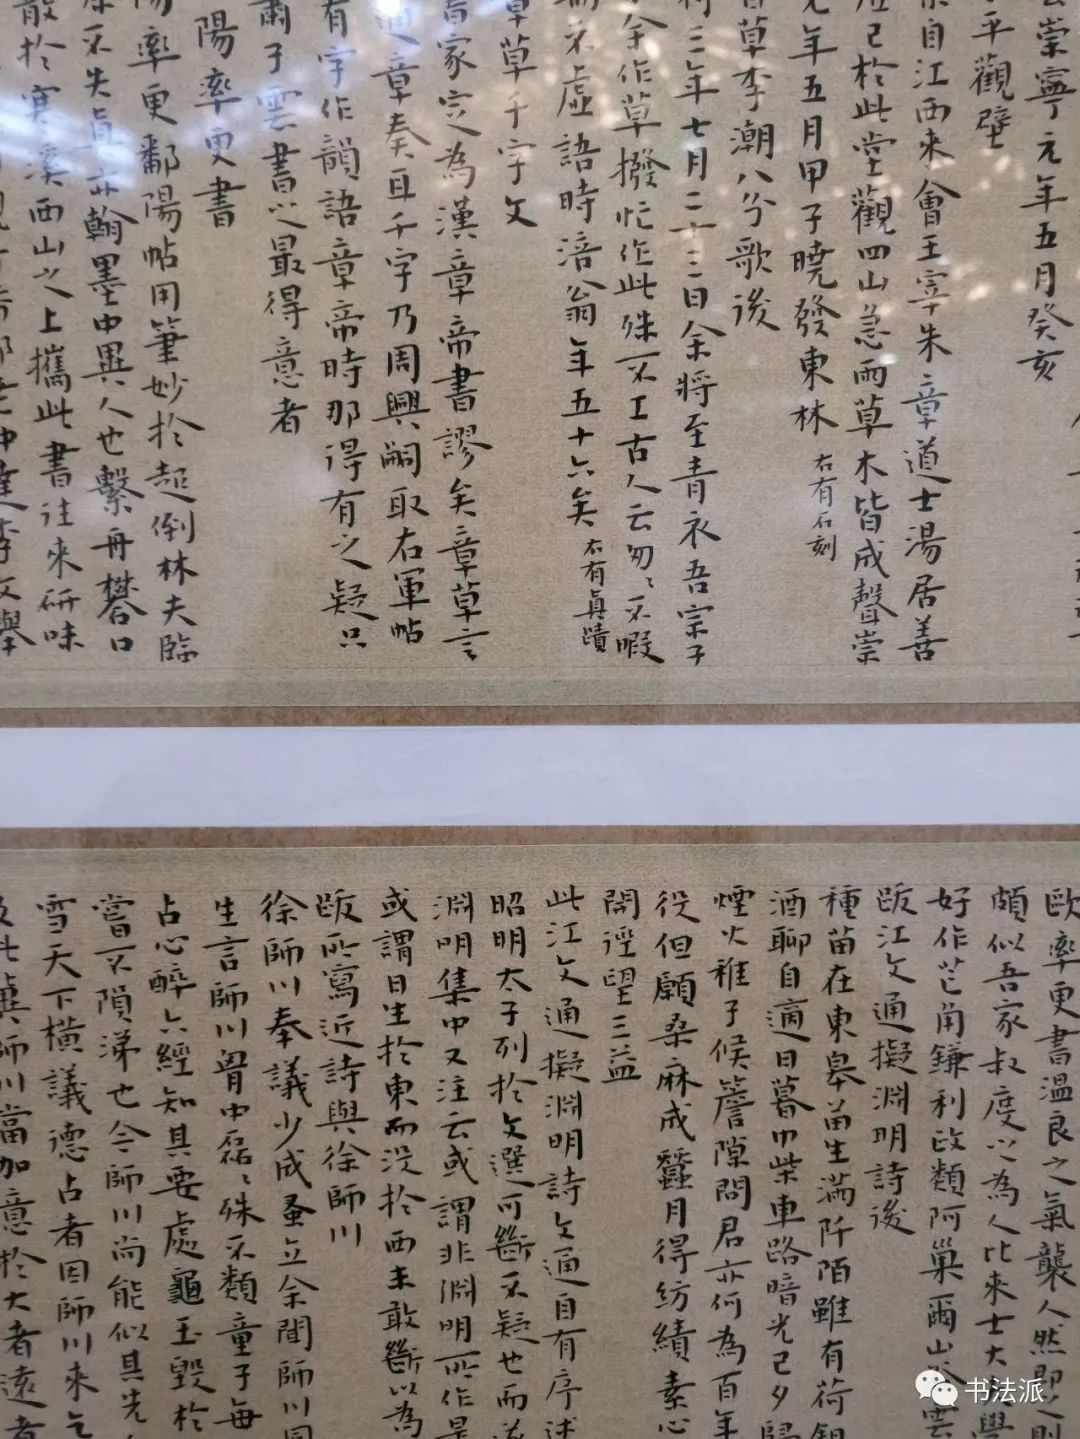 崇寧元年五月癸亥
平觀壁
自江西來會王宰朱章道士湯居善
已於此堂觀四山急雨草木皆成聲崇
年五月甲子曉發東林 右有石刻
草李潮八分歌後
三年七月二十三日余將至青衣吾宗子
余作草撥忙作此殊不工古人云匆〻不暇
不虛語時涪翁年五十六矣 右有真蹟
草千字文
家定為漢章帝書謬矣章草言
章奏耳千字乃周興嗣取右軍帖
有字作韻語章帝時那得有之疑只
子雲書之最得意者
陽率更書
率更鄱陽帖用筆妙於起倒林夫臨
不失真亦翰墨中異人也繫舟礬口
於寒溪西山之上攜此書往來研味
歐率更書溫良之氣襲人然即之則
頗似吾家叔度之為人比來士大學
好作芒角鎌利政類阿巢爾山谷雲
跋江文通擬淵明詩後
種苗在東皋苗生滿阡陌雖有荷鉏
酒聊自適日暮巾柴車路暗光已夕歸
煙火稚子候簷隙問君亦何為百年
役但願桑麻成蠶月得紡績素心
開逕望三益
此江文通擬淵明詩文通自有序述
昭明太子列於文選可斷不疑也而
淵明集中又注云或謂非淵明所作是
或謂日生於東而沒於西未敢斷以為
跋所寫近詩與徐師川
徐師川奉議少成蚤立余聞師川
生言師川胷中磊〻殊不類童子每
占心醉六經知其要處龜玉毀於
嘗不隕涕也今師川尚能似其先
雪天下橫議德占者因師川來乞
此巽師川當加意於大者遠者
书法派